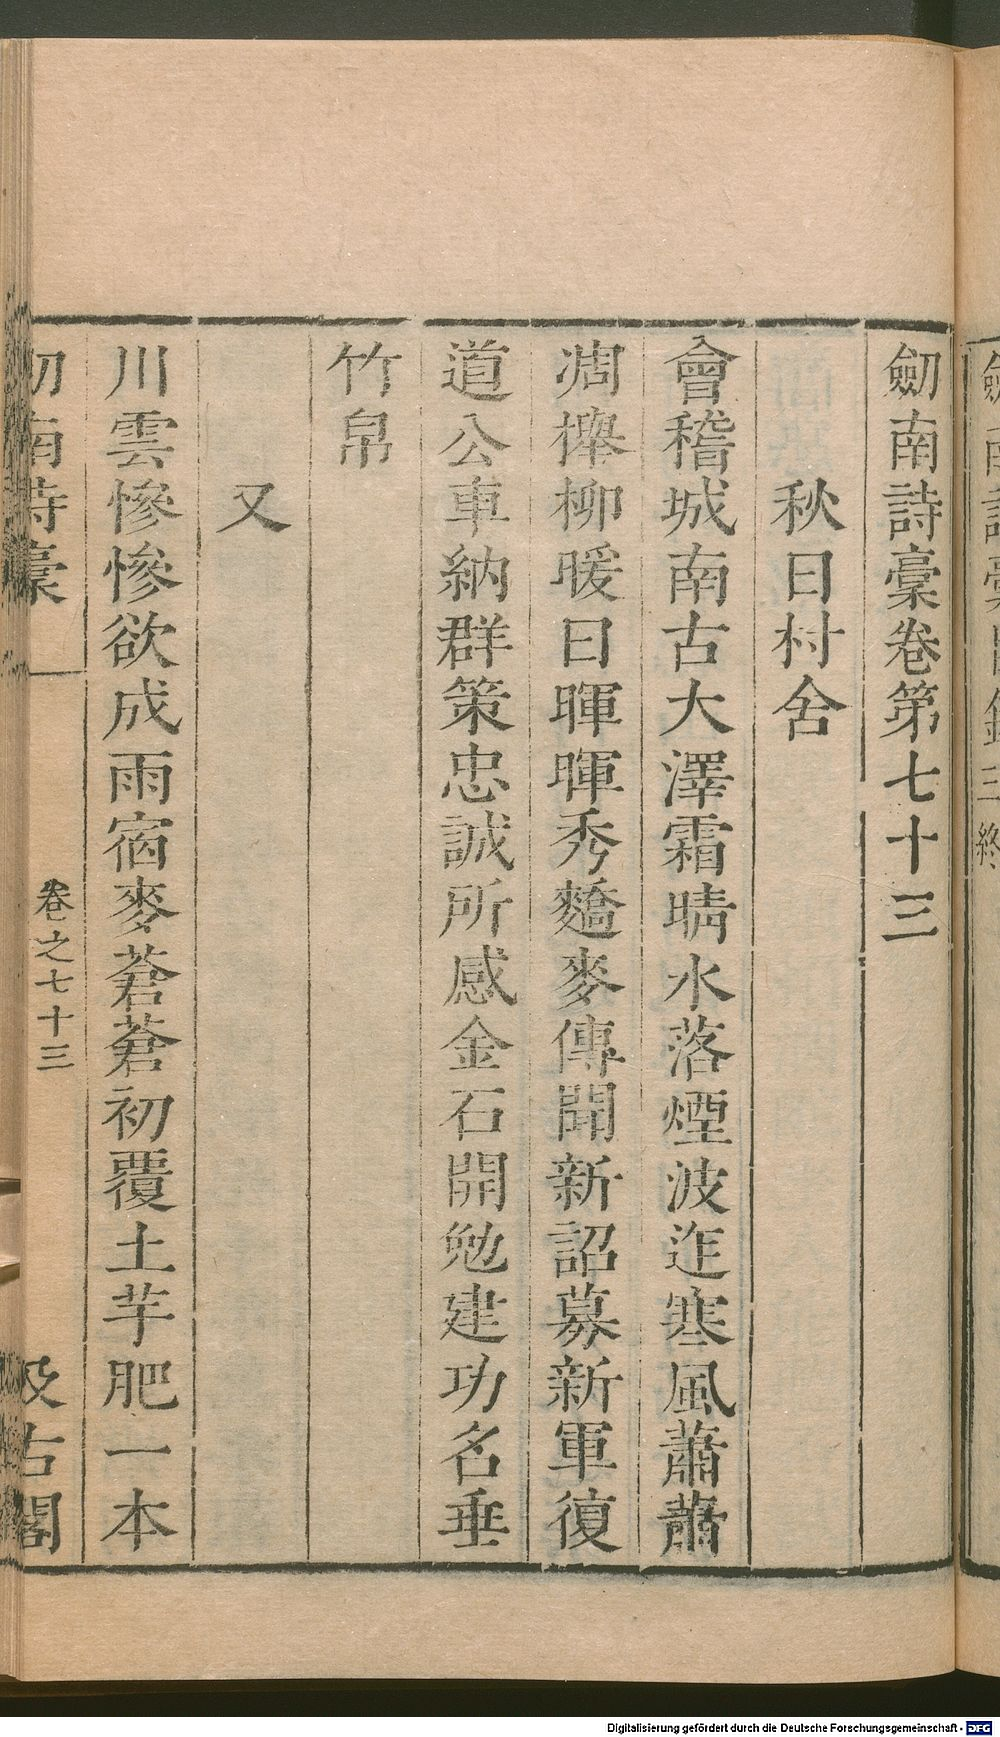 劒南詩稾卷第七十三
秋日村舍
會稽城南古大澤霜晴水落煙波迮寒風蕭蕭
凋櫸柳暖日暉暉秀蕎麥傳聞新詔募新軍復
道公車納群策忠誠所感金石開勉建功名垂
竹帛
又
川雲慘慘欲成雨宿麥蒼蒼初覆土芋肥一本
劒南詩稾
卷之七十三
汲古閣
Digitalisierung gefördert durch die Deutsche Forschungsgemeinschaft - DFG